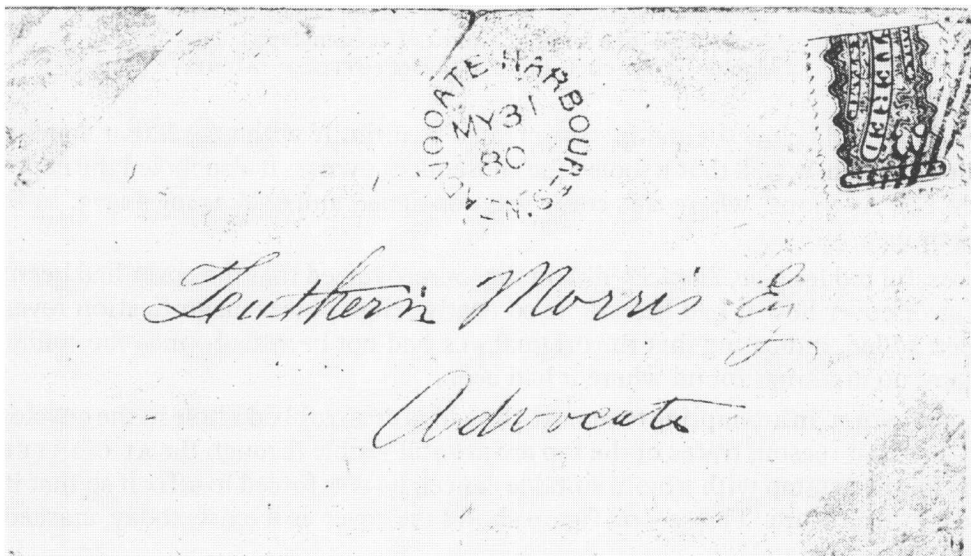 ADVOCATE HARBOUR N.S.
MY 31
80
Leuthern Morris Esq
Advocate